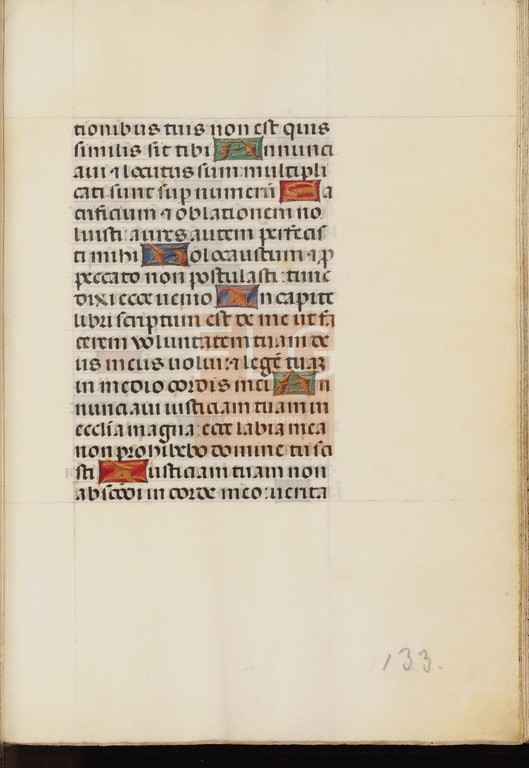 tionibus tuis non est quis
similis sit tibi Annunci
aui ⁊ locutus sum multipli
cati sunt sup numerū Sa
crificium ⁊ oblationem no
luisti aures autem perfecis
ti mihi Holocaustum ⁊ p
peccato non postulasti : tunc
dixi ecce uenio In capite
libri scriptum est de me ut fa
cerem voluntatem tuam de
us meus uolui : ⁊ legē tuā
in medio cordis mei An
nunciaui iusticiam tuam in
ecclīa magna : ecce labia mea
non prohibebo domine tu sci
sti Iusticiam tuam non
abscōdi in corde meo : uerita
133.